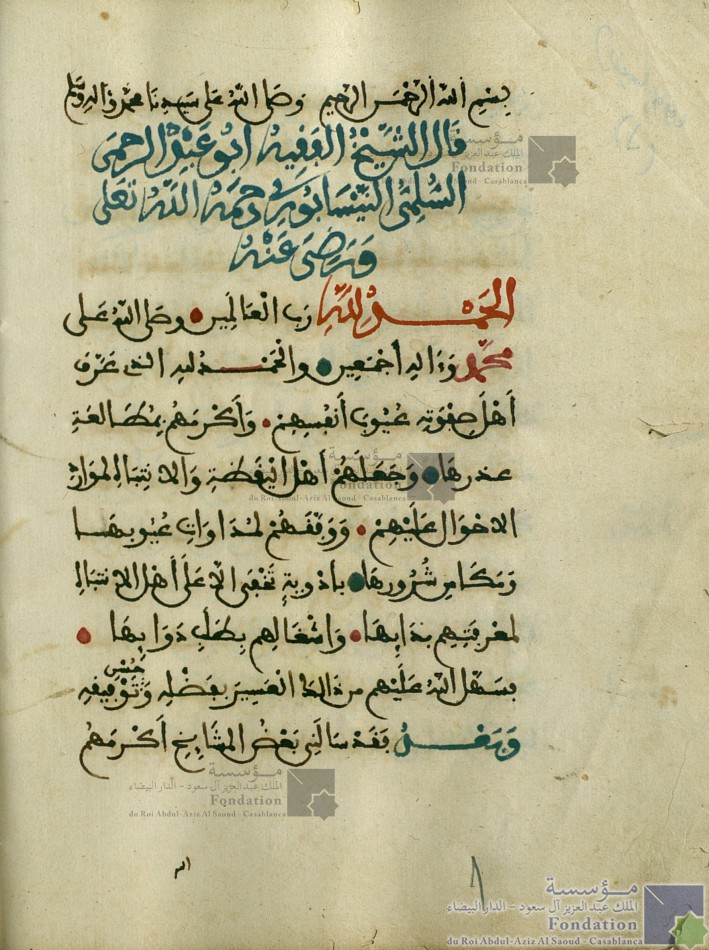 بسم الله الرحمن الرحيم وصلى الله على سيدنا محمد وآله وسلم
قال الشيخ الفقيه أبو عبد الرحمن
السلمي النيسابوري رحمه الله تعلى
ورضي عنه
الحمد لله رب العالمين وصلى الله على
محمد وءاله أجمعين والحمد لله الذي عرف
أهل صفوته عيوب أنفسهم وأكرمهم بمطالعة
عذرها وجعلهم أهل اليقظة والانتباه لموارد
الاحوال عليهم ووفقهم لمداوات عيوبها
ومكامن شرورها بأدوية تخفى الا على أهل الانتباه
لمعرفتهم بدايها واشغالهم بطلب دوايها
فسهل الله عليهم من ذالك العسير بفضله وحسن توفيقه
وبعد فقد سالني بعض المشايخ أكرمهم
مؤسسة
الملك عبد العزيز آل سعود - الدار البيضاء
Fondation
du Roi Abdul-Aziz Al Saoud - Casablanca